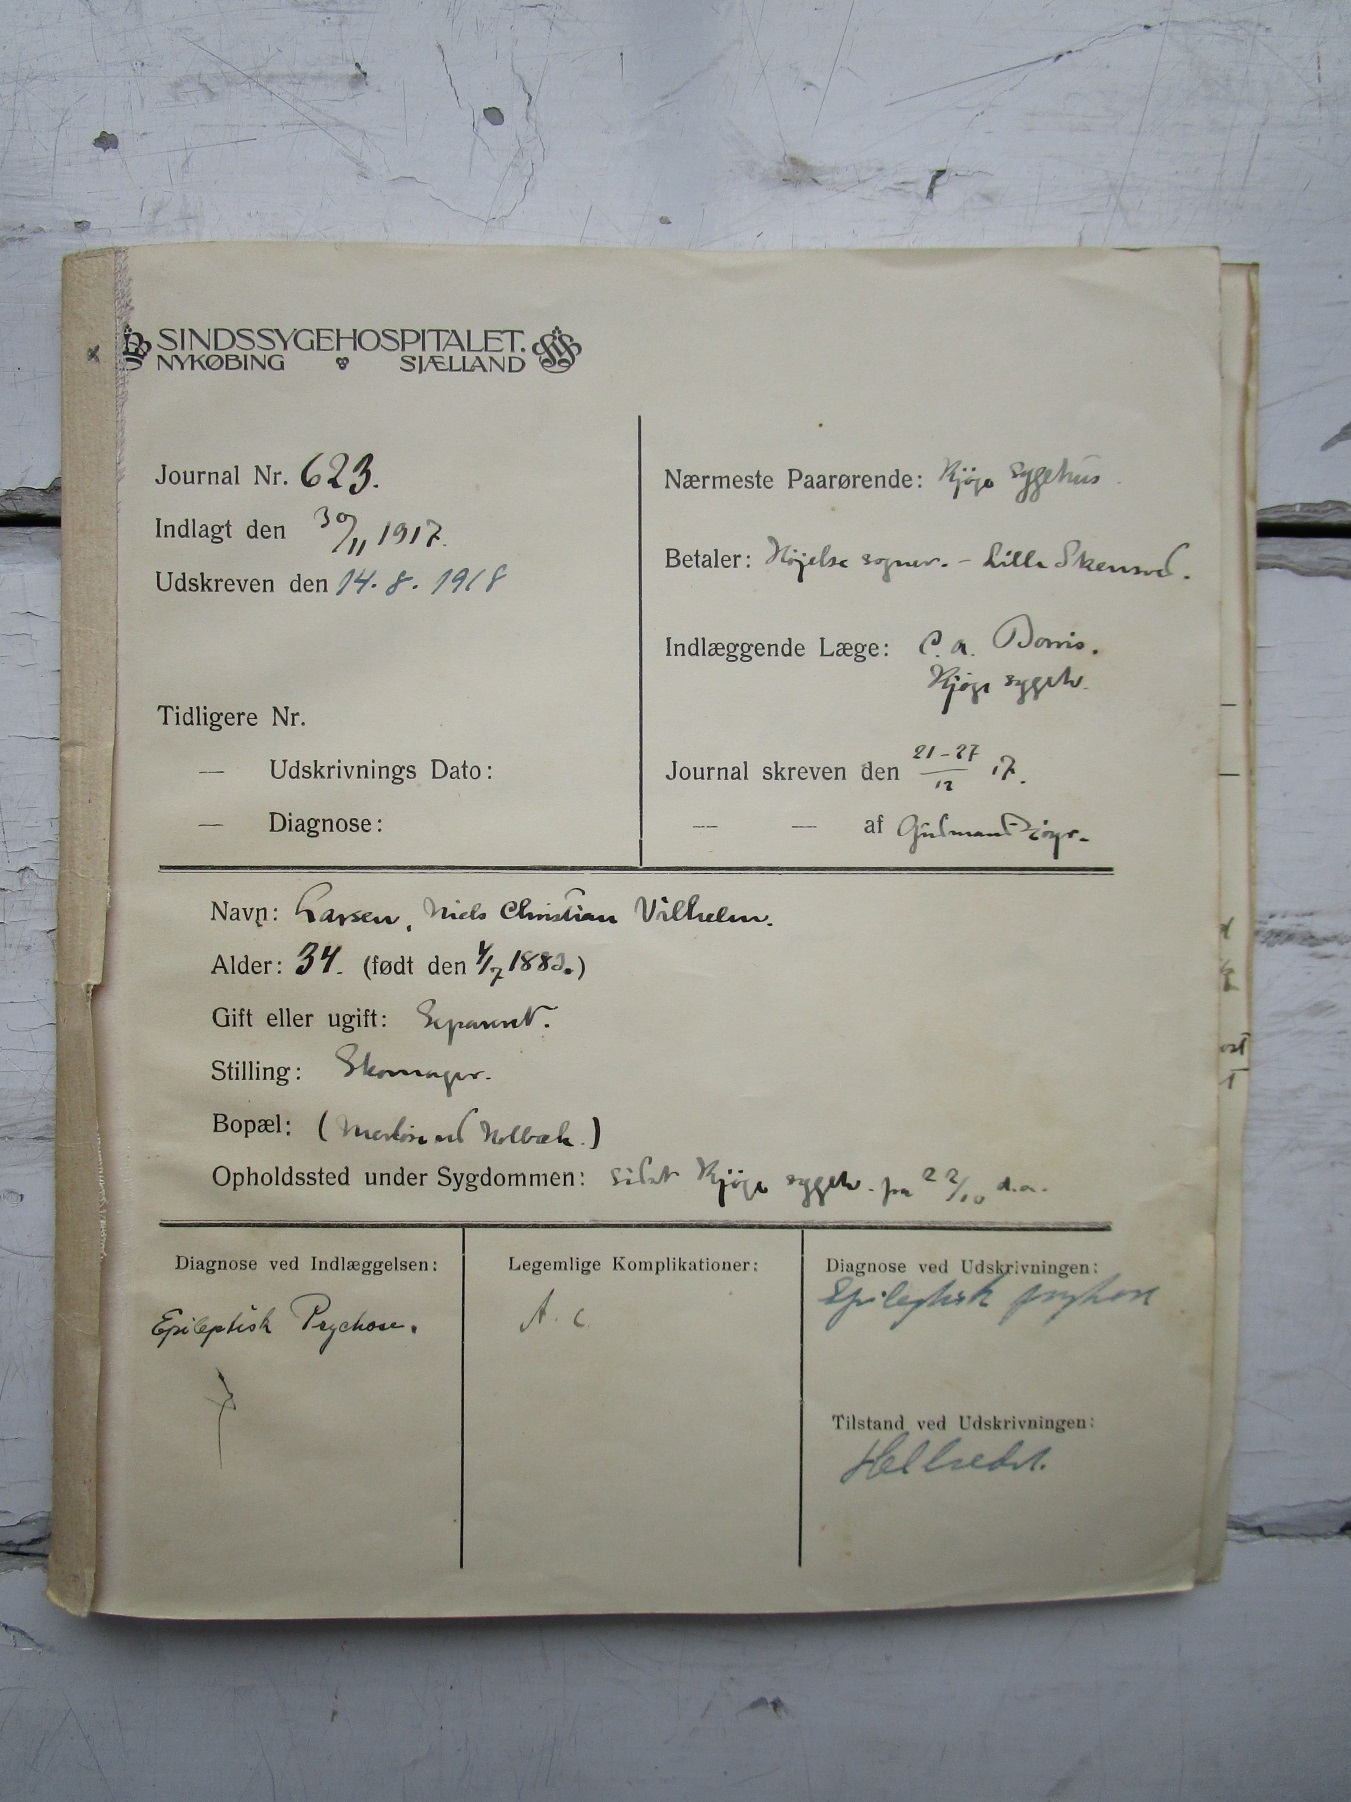 SINDSSYGEHOSPITALET.
NYKØBING SJÆLLAND
Journal Nr. 623.
Indlagt den 30/11 1917.
Udskreven den 14. 8. 1918
Tidligere Nr.
— Udskrivnings Dato:
— Diagnose:
Nærmeste Paarørende: Kjøge sygehus.
Betaler: Højelse sogner. - Lille Skensved.
Indlæggende Læge: C. a.
Kjøge sygeh.
Journal skreven den 21-27/12 17.
— — af
Navn: Larsen, Niels Christian Vilhelm.
Alder: 34. (født den 4/7 1883.)
Gift eller ugift: Separeret.
Stilling: Skomager.
Bopæl: ( Holbæk.)
Opholdssted under Sygdommen: sidst Kjøge sygeh. fra 22/10 d.a.
Diagnose ved Indlæggelsen:
Epileptisk Psychose.
Legemlige Komplikationer:
A. c.
Diagnose ved Udskrivningen:
Epileptisk psychose
Tilstand ved Udskrivningen:
Helbredet.